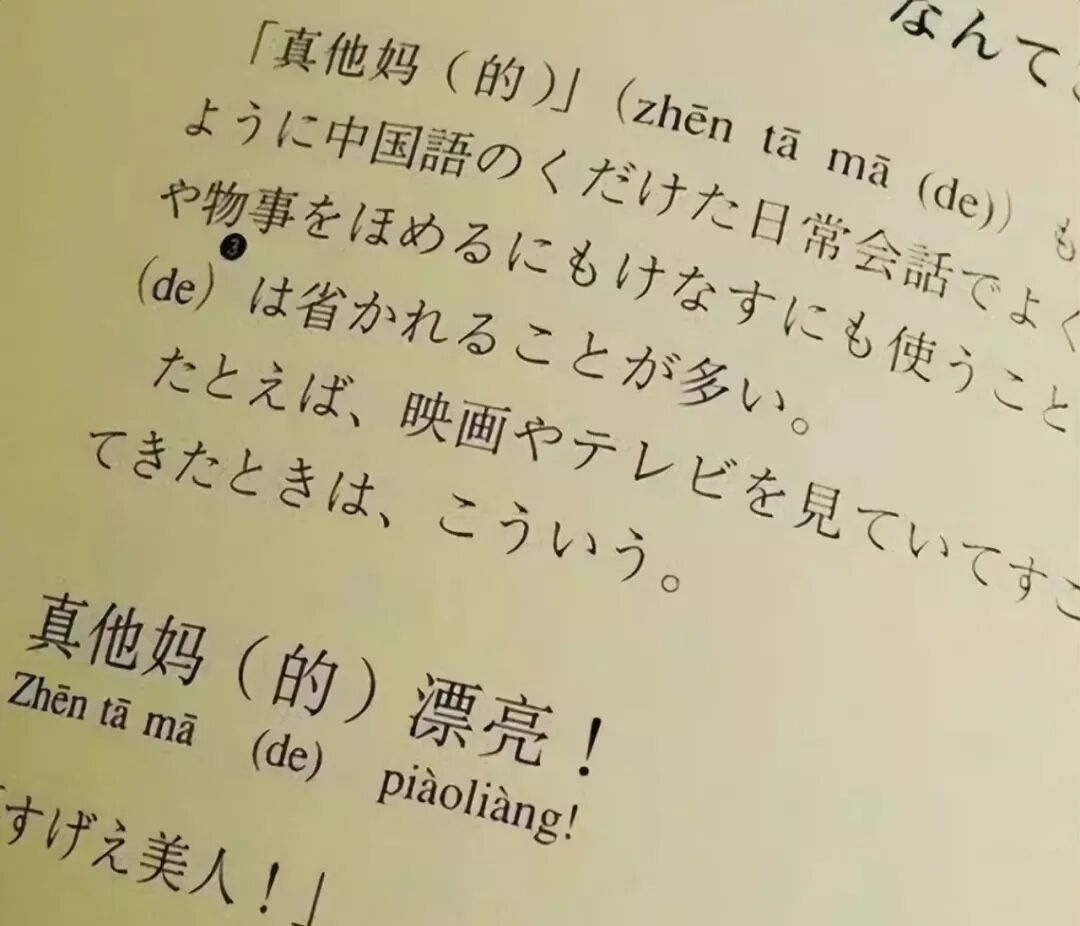 なんてき
「真他妈（的）」（zhēn tā mā (de)）も
ように中国語のくだけた日常会話でよく
や物事をほめるにもけなすにも使うこと
❸
(de) は省かれることが多い。
たとえば、映画やテレビを見ていてすご
てきたときは、こういう。
真他妈（的）漂亮！
Zhēn tā mā (de) piàoliàng!
「すげえ美人！」